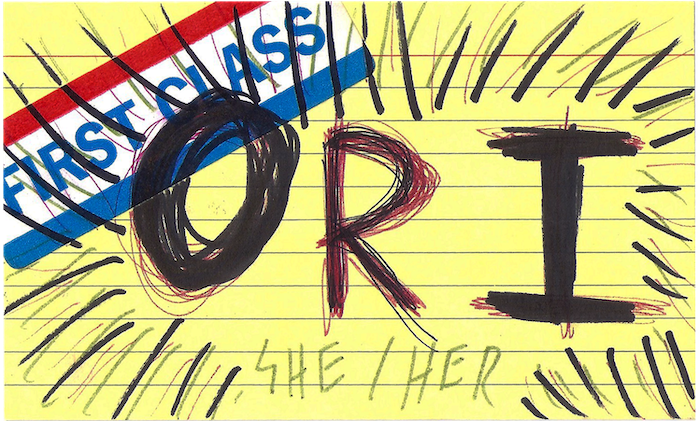 FIRST CLASS
ORI
SHE / HER